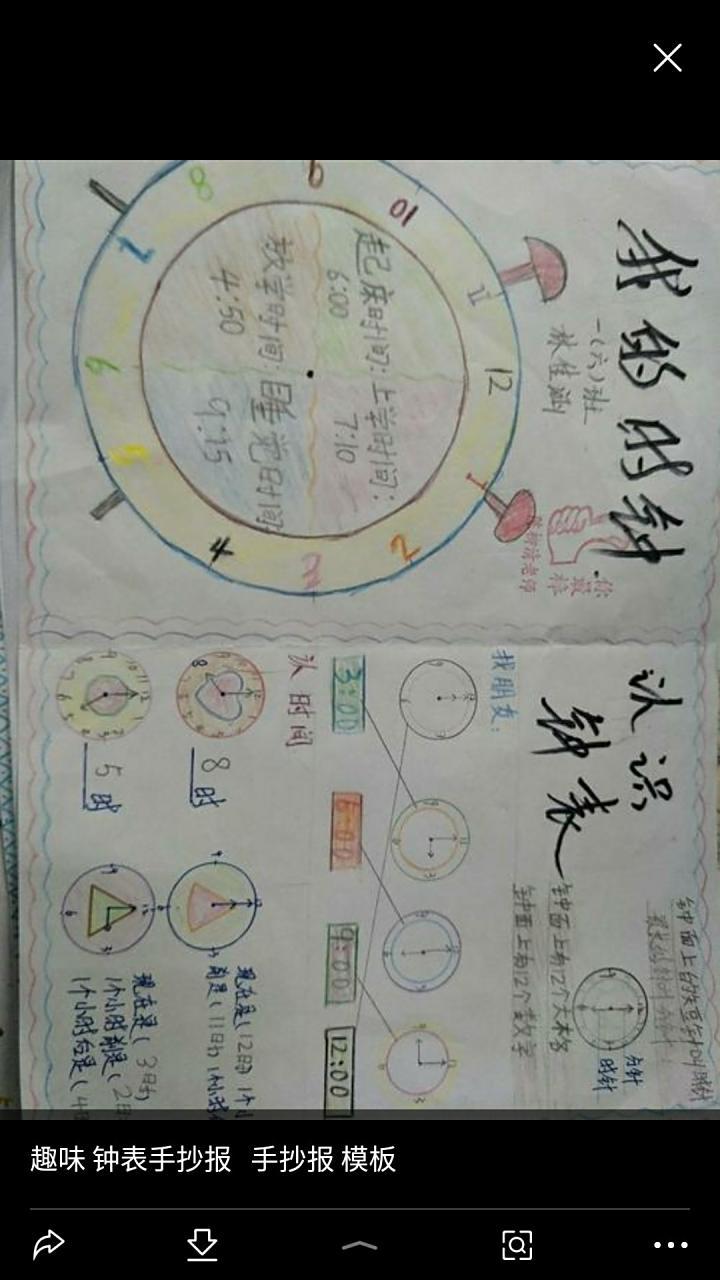 我的时钟
一(六)班
你最棒
起床时间:
6:00
上学时间:
7:10
放学时间:
4:50
睡觉时间:
9:15
12
1
2
3
4
5
6
7
8
9
10
11
认识
钟表
时针
分针
钟面上有12个大格
钟面上有12个数字
找朋友:
3:00
6:00
9:00
12:00
认时间
8时
5时
现在是(12时)
1个小
前是(11时)
1个小时
现在是(3时)
1个小时前是(2时
1个小时后是(4时
趣味 钟表手抄报 手抄报 模板